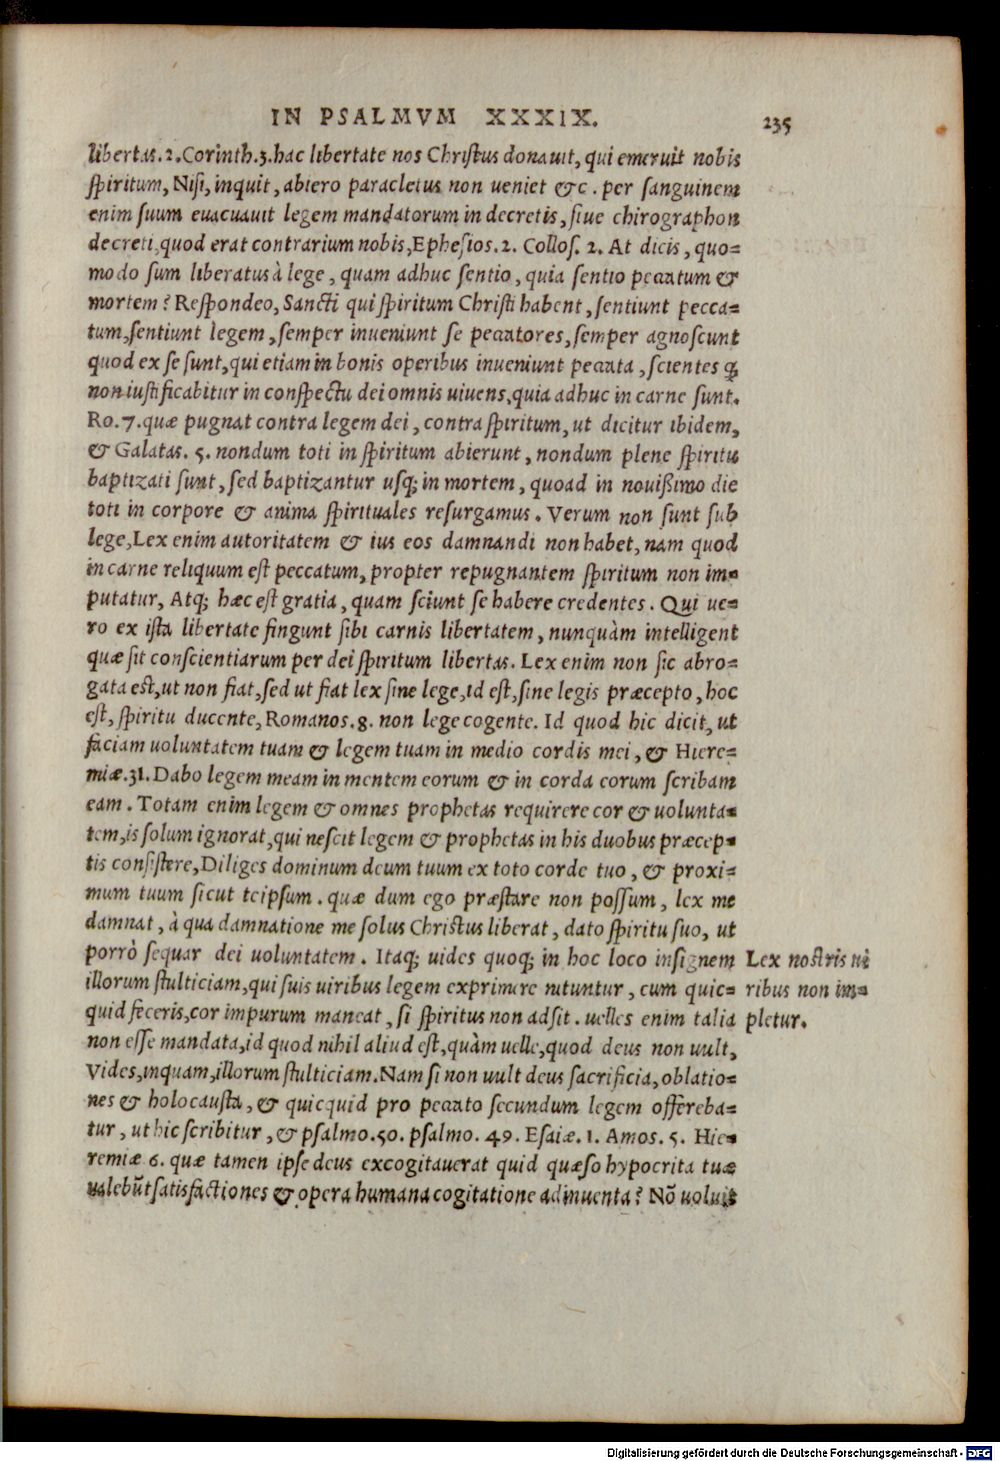 IN PSALMVM XXXIX. 235
libertas.2.Corinth.3.hac libertate nos Christus donauit, qui emeruit nobis
spiritum, Nisi, inquit, abiero paracletus non ueniet &c. per sanguinem
enim suum euacuauit legem mandatorum in decretis, siue chirographon
decreti, quod erat contrarium nobis, Ephesios.2. Collos. 2. At dicis, quo=
modo sum liberatus à lege, quam adhuc sentio, quia sentio peccatum &
mortem? Respondeo, Sancti qui spiritum Christi habent, sentiunt pecca=
tum, sentiunt legem, semper inueniunt se peccatores, semper agnoscunt
quod ex se sunt, qui etiam in bonis operibus inueniunt peccata, scientes ꝙ
non iustificabitur in conspectu dei omnis uiuens, quia adhuc in carne sunt.
Ro.7.quæ pugnat contra legem dei, contra spiritum, ut dicitur ibidem,
& Galatas. 5. nondum toti in spiritum abierunt, nondum plene spiritu
baptizati sunt, sed baptizantur usq; in mortem, quoad in nouißimo die
toti in corpore & anima spirituales resurgamus. Verum non sunt sub
lege, Lex enim autoritatem & ius eos damnandi non habet, nam quod
in carne reliquum est peccatum, propter repugnantem spiritum non im=
putatur, Atq; hæc est gratia, quam sciunt se habere credentes. Qui ue=
ro ex ista libertate fingunt sibi carnis libertatem, nunquàm intelligent
quæ sit conscientiarum per dei spiritum libertas. Lex enim non sic abro=
gata est, ut non fiat, sed ut fiat lex sine lege, id est, sine legis præcepto, hoc
est, spiritu ducente, Romanos.8. non lege cogente. Id quod hic dicit, ut
faciam uoluntatem tuam & legem tuam in medio cordis mei, & Hiere=
miæ.31. Dabo legem meam in mentem eorum & in corda eorum scribam
eam. Totam enim legem & omnes prophetas requirere cor & uolunta=
tem, is solum ignorat, qui nescit legem & prophetas in his duobus præcep=
tis consistere, Diliges dominum deum tuum ex toto corde tuo, & proxi=
mum tuum sicut teipsum. quæ dum ego præstare non possum, lex me
damnat, à qua damnatione me solus Christus liberat, dato spiritu suo, ut
porrò sequar dei uoluntatem. Itaq; uides quoq; in hoc loco insignem
illorum stulticiam, qui suis uiribus legem exprimere nituntur, cum quic=
quid feceris, cor impurum maneat, si spiritus non adsit. uelles enim talia
non esse mandata, id quod nihil aliud est, quàm uelle, quod deus non uult,
Vides, inquam, illorum stulticiam. Nam si non uult deus sacrificia, oblatio=
nes & holocausta, & quicquid pro peccato secundum legem offereba=
tur, ut hic scribitur, & psalmo.50. psalmo. 49. Esaiæ. 1. Amos. 5. Hie=
remiæ 6. quæ tamen ipse deus excogitauerat quid quæso hypocrita tuæ
ualebũt satisfactiones & opera humana cogitatione adinuenta? Nõ uoluit
Lex nostris ui
ribus non im=
pletur.
Digitalisierung gefördert durch die Deutsche Forschungsgemeinschaft - DFG